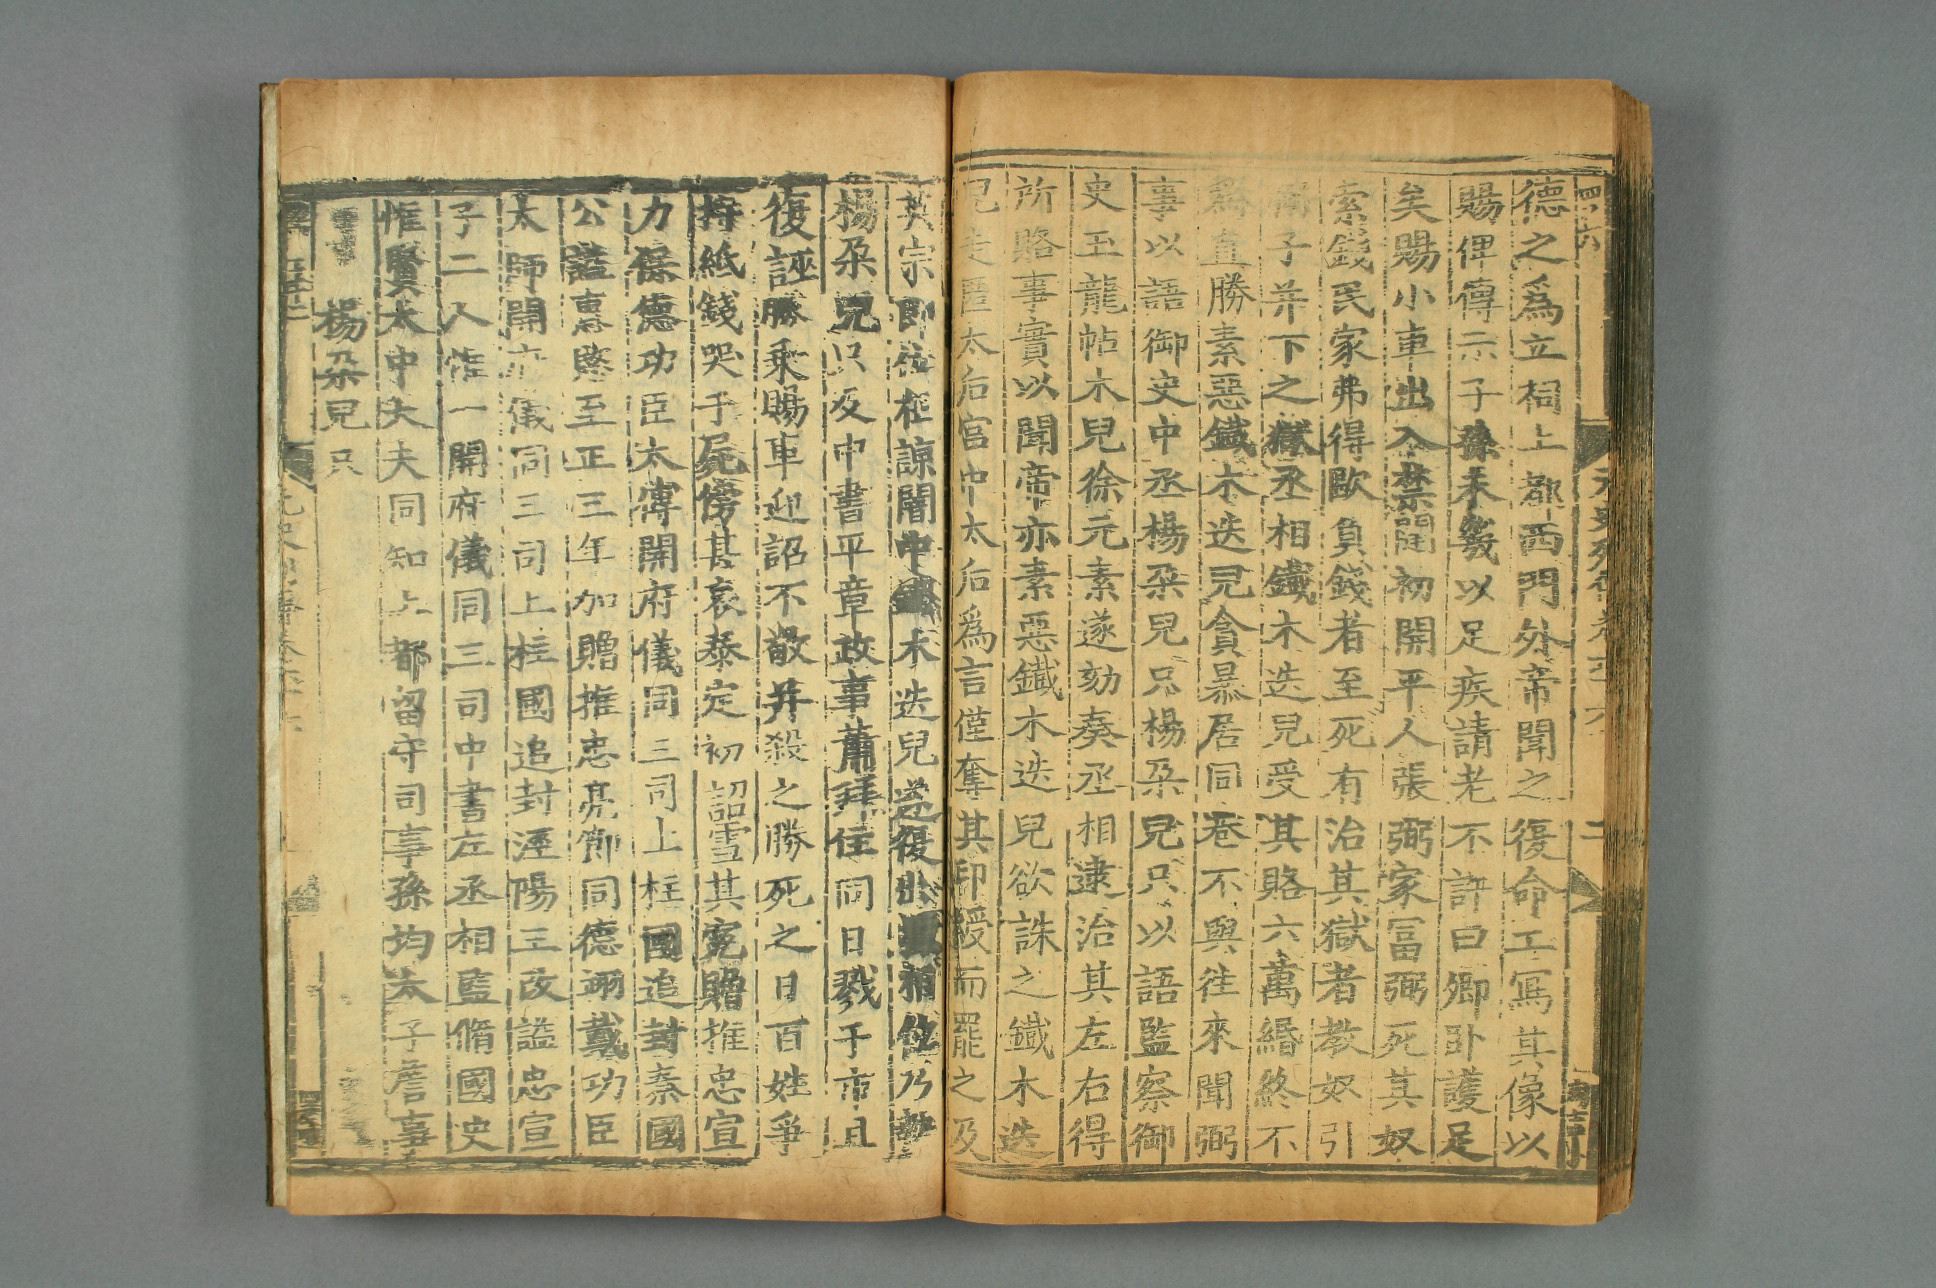 德之爲立祠上都西門外帝聞之復命工寫其像以
賜俾傳示子孫未幾以足疾請老不許曰卿臥護足
矣賜小車出入禁闥初開平人張弼家富弼死其奴
索錢民家弗得毆負錢者至死有治其獄者教奴引
弼子并下之獄丞相鐵木迭兒受其賂六萬緡終不
爲直勝素惡鐵木迭兒貪暴居同巷不與往來聞弼
事以語御史中丞楊朶兒只楊朶兒只以語監察御
史玉龍帖木兒徐元素遂劾奏丞相逮治其左右得
所賂事實以聞帝亦素惡鐵木迭兒欲誅之鐵木迭
兒走匿太后宮中太后爲言僅奪其印綬而罷之及
英宗即位在諒闇中鐵木迭兒遂復出相位乃執
楊朶兒只及中書平章政事蕭拜住同日戮于市且
復誣勝乘賜車迎詔不敬并殺之勝死之日百姓爭
持紙錢哭于屍傍甚哀泰定初詔雪其寃贈推忠宣
力保德功臣太傅開府儀同三司上柱國追封秦國
公謚惠愍至正三年加贈推忠亮節同德翊戴功臣
太師開府儀同三司上柱國追封涇陽王改謚忠宣
子二人惟一開府儀同三司中書左丞相監脩國史
惟賢太中大夫同知上都留守司事孫均太子詹事
楊朶兒只